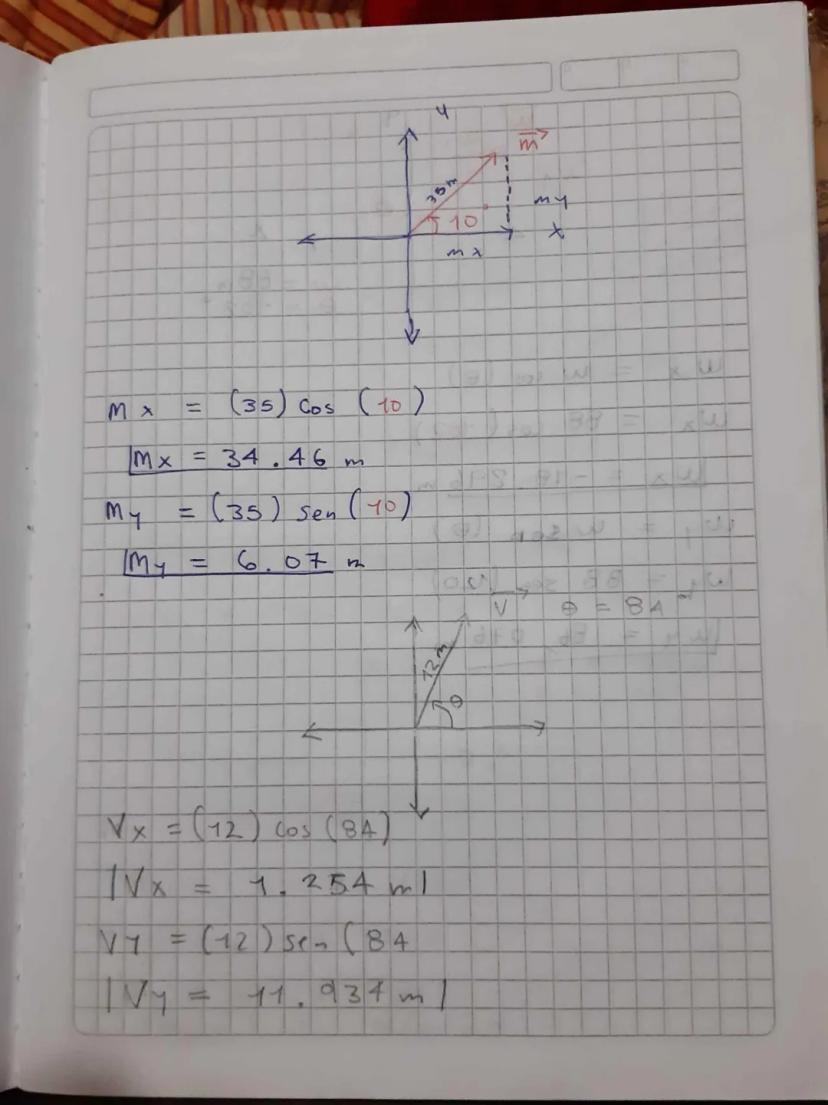 y
m
35m
10°
my
x
mx
mx = (35) cos (10)
mx = 34.46 m
my = (35) sen (10)
my = 6.07 m
V θ = 84°
12m
θ
Vx = (12) cos (84)
Vx = 1.254 m
Vy = (12) sen (84
Vy = 11.934 m